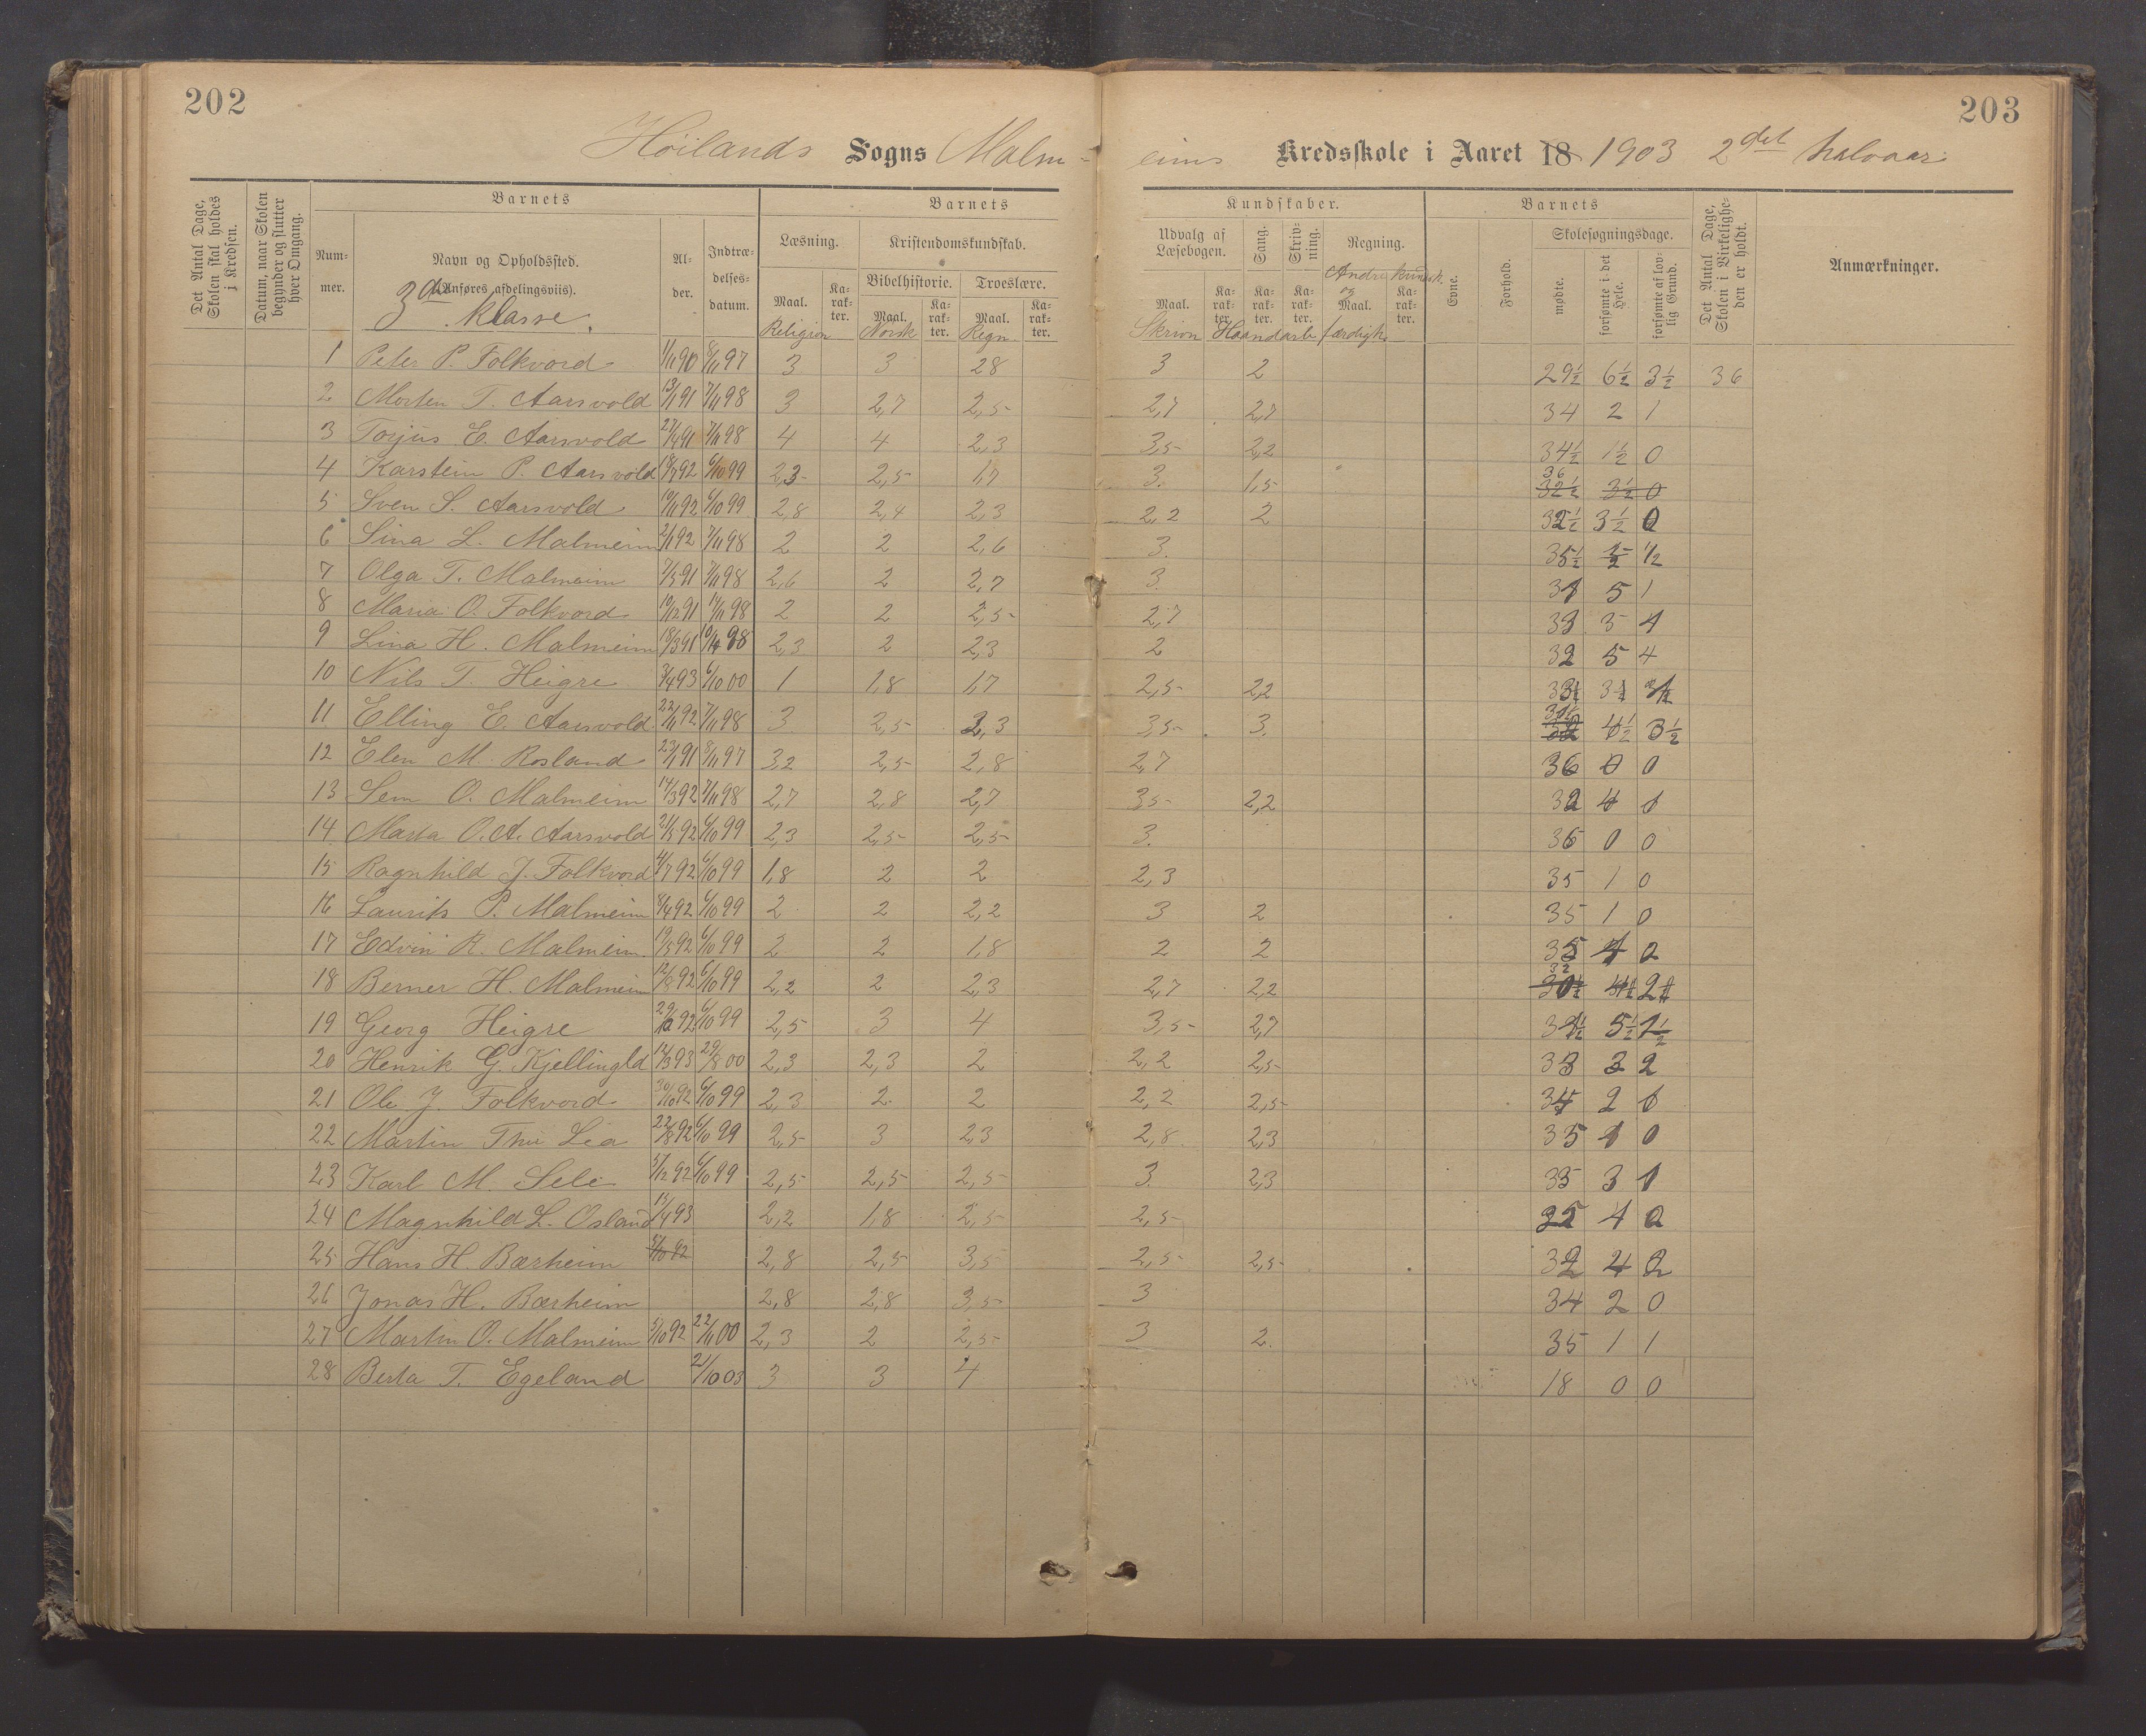 202
203
Høilands Sogns Malm-
eims Kredsskole i Aaret 18 1903 2det halvaar
Det Antal Dage, Skolen skal holdes i Kredsen.
Datum, naar Skolen begynder og slutter hver Omgang.
Barnets
Num-mer.
Navn og Opholdssted.
(Anføres afdelingsviis).
3die klasse.
Al-der.
Indtræ-delses-datum.
Barnets
Kundskaber.
Læsning.
Kristendomskundskab.
Bibelhistorie.
Troeslære.
Maal. Ka-rak-ter. Maal. Ka-rak-ter. Maal. Ka-rak-ter.
Religion Norsk Regn.
Udvalg af Læsebogen.
Sang.
Skriv-ning.
Regning.
Andre kundsk. og
Maal. Ka-rak-ter. Ka-rak-ter. Ka-rak-ter. Maal. Ka-rak-ter.
Skrivn Haandarb færdigh.
Barnets
Evne.
Forhold.
Skolesøgningsdage.
mødte.
forsømte i det Hele.
forsømte af lov-lig Grund.
Det Antal Dage, Skolen i Virkelighe-den er holdt.
Anmærkninger.
1 Peter P. Folkvord 1/11 90 8/11 97 3 3 28 3 2 29½ 6½ 3½ 36
2 Morten T. Aarsvold 13/1 91 7/11 98 3 2,7 2,5 2,7 2,7 34 2 1
3 Torjus E. Aarsvold 27/4 91 7/11 98 4 4 2,3 3,5 2,2 34½ 1½ 0
4 Karstein P. Aarsvold 18/7 92 6/10 99 2,3 2,5 1,7 3. 1,5 36 32½ 3½ 0
5 Sven S. Aarsvold 10/11 92 6/10 99 2,8 2,4 2,3 2,2 2 32½ 3½ 0
6 Sina L. Malmeim 2/1 92 7/11 98 2 2 2,6 3. 35½ ½ 1/2
7 Olga T. Malmeim 7/5 91 7/11 98 2,6 2 2,7 3. 31 5 1
8 Maria O. Folkvord 10/12 91 14/11 98 2 2 2,5 2,7 33 3 1
9 Lina H. Malmeim 18/3 91 98 2,3 2 2,3 2 32 5 4
10 Nils T. Heigre 3/4 93 6/10 00 1 1,8 1,7 2,5 2,2
11 Elling E. Aarsvold 22/11 92 7/11 98 3 2,5 2,3 3,5 3. 4½ 3½
12 Elen M. Rosland 23/1 91 8/11 97 3,2 2,5 2,8 2,7 36 0 0
13 Sem O. Malmeim 14/3 92 7/11 98 2,7 2,8 2,7 3,5 2,2 32 4
14 Marta O. A. Aarsvold 21/5 92 6/10 99 2,3 2,5 2,5 3. 36 0 0
15 Ragnhild J. Folkvord 4/7 92 6/10 99 1,8 2 2 2,3 35 1 0
16 Laurits P. Malmeim 8/4 92 6/10 99 2 2 2,2 3 2 35 1 0
17 Edvin R. Malmeim 19/5 92 6/10 99 2 2 1,8 2 2 35 1 0
18 Berner H. Malmeim 12/8 92 6/10 99 2,2 2 2,3 2,7 2,2 32
19 Georg Heigre 29/12 92 6/10 99 2,5 3 4 3,5 2,7 31½ 5½ 1½
20 Henrik G. Kjellingld 14/3 93 29/8 00 2,3 2,3 2 2,2 2,5 33 3 2
21 Ole J. Folkvord 30/10 92 6/10 99 2,3 2 2 2,2 2,5 34 2
22 Martin Thu Lea 22/8 92 6/10 99 2,5 3 2,3 2,8 2,3 35 1 0
23 Karl M. Sele 5/12 92 6/10 99 2,5 2,5 2,5 3. 2,3 33 3 1
24 Magnhild L. Osland 15/4 93 2,2 1,8 2,5 2,5 35 1 0
25 Hans H. Bærheim 5/10 92 2,8 2,5 3,5 2,5 2,5 32 4 2
26 Jonas H. Bærheim 2,8 2,8 3,5 3 34 2 0
27 Martin O. Malmeim 5/10 92 22/11 00 2,3 2 2,5 3 2. 35 1 1
28 Berta T. Egeland 21/10 03 3 3 4 18 0 0